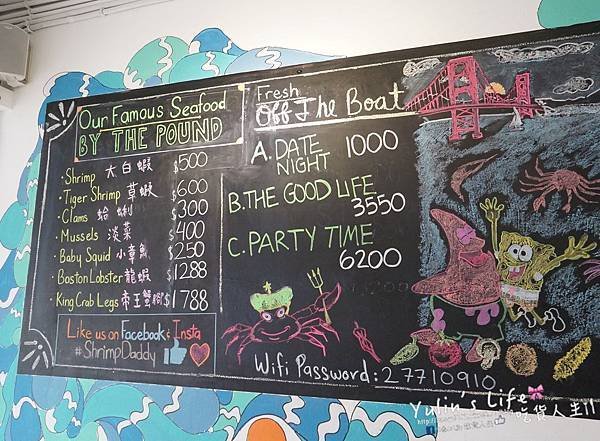 Our Famous Seafood
BY THE POUND
·Shrimp 大白蝦 $500
·Tiger Shrimp 草蝦 $600
·Clams 蛤蜊 $300
·Mussels 淡菜 $400
·Baby Squid 小章魚 $250
·Boston Lobster 龍蝦 $1288
·King Crab Legs 帝王蟹腳 $1788
Like us on Facebook & Insta
#ShrimpDaddy
Fresh
Off The Boat
A. DATE NIGHT 1000
B. THE GOOD LIFE
3550
C. PARTY TIME
6200
Wifi Password: 27710910
Yulin's Life
吃貨人生